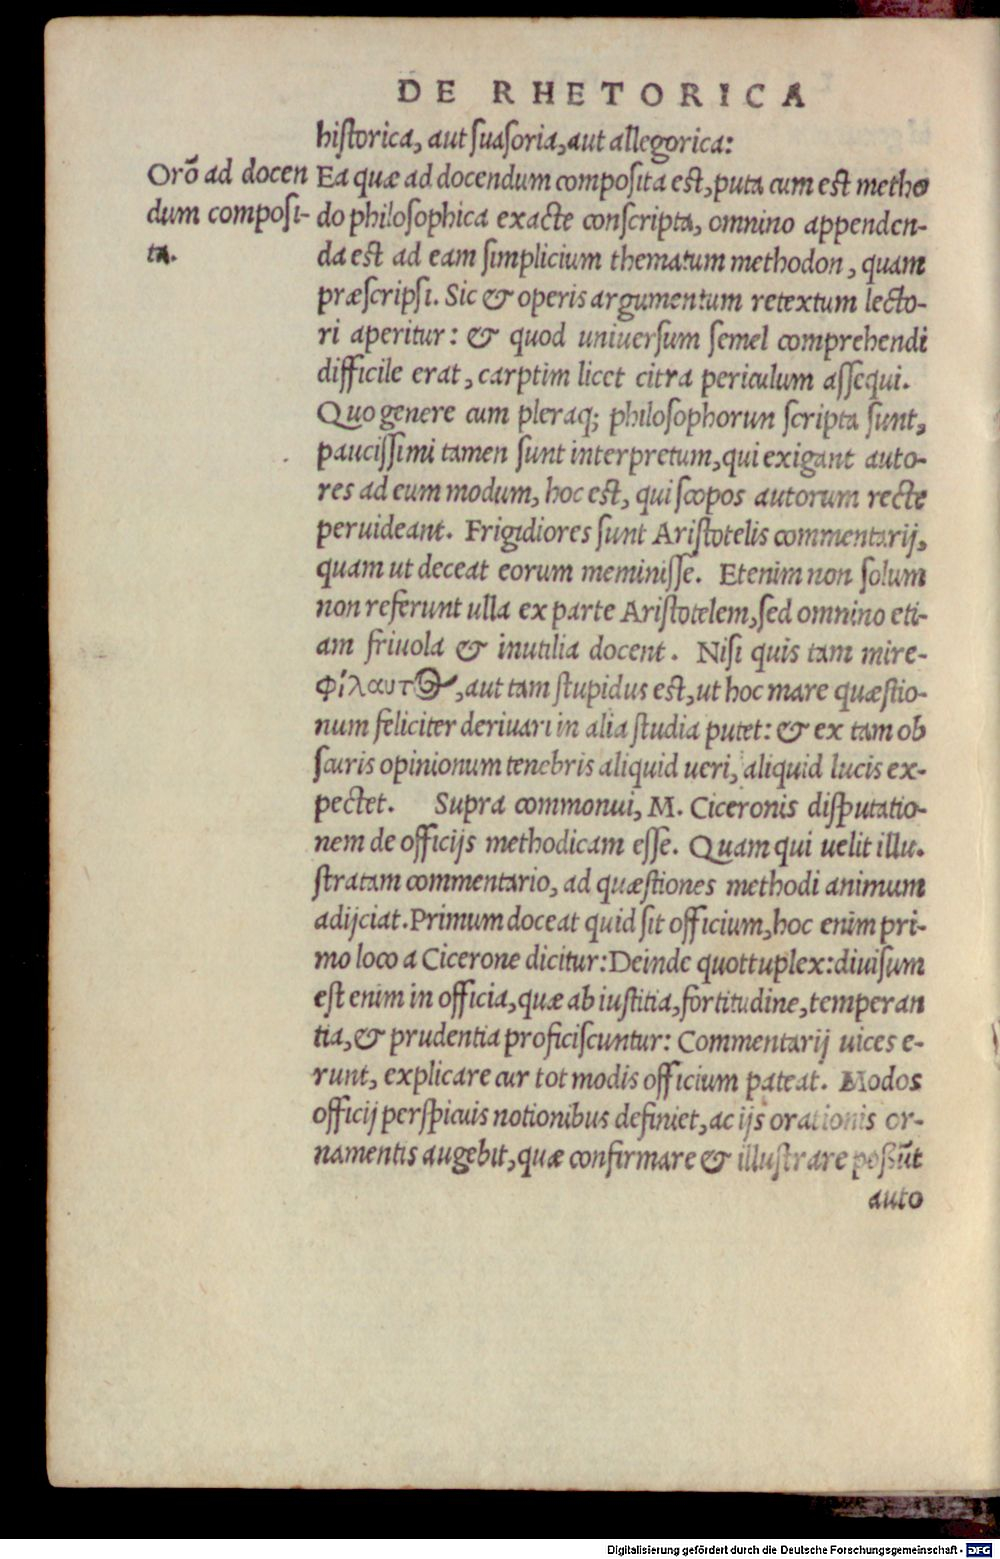 DE RHETORICA
hiſtorica, aut ſuaſoria, aut allegorica:
Orō ad docen
dum compoſi-
ta.
Ea quæ ad docendum compoſita eſt, puta cum eſt metho
do philoſophica exacte conſcripta, omnino appenden-
da eſt ad eam ſimplicium thematum methodon, quam
præſcripſi. Sic & operis argumentum retextum lecto-
ri aperitur: & quod uniuerſum ſemel comprehendi
difficile erat, carptim licet citra periculum aſſequi.
Quo genere cum pleraq; philoſophorun ſcripta ſunt,
pauciſſimi tamen ſunt interpretum, qui exigant auto-
res ad eum modum, hoc eſt, qui ſcopos autorum recte
peruideant. Frigidiores ſunt Ariſtotelis commentarij,
quam ut deceat eorum meminiſſe. Etenim non ſolum
non referunt ulla ex parte Ariſtotelem, ſed omnino eti-
am friuola & inutilia docent. Niſi quis tam mire-
φίλαυτος, aut tam ſtupidus eſt, ut hoc mare quæſtio-
num feliciter deriuari in alia ſtudia putet: & ex tam ob
ſcuris opinionum tenebris aliquid ueri, aliquid lucis ex-
pectet. Supra commonui, M. Ciceronis diſputatio-
nem de officijs methodicam eſſe. Quam qui uelit illu-
ſtratam commentario, ad quæſtiones methodi animum
adijciat. Primum doceat quid ſit officium, hoc enim pri-
mo loco a Cicerone dicitur: Deinde quottuplex: diuiſum
eſt enim in officia, quæ ab iuſtitia, fortitudine, temperan
tia, & prudentia proficiſcuntur: Commentarij uices e-
runt, explicare cur tot modis officium pateat. Modos
officij perſpicuis notionibus definiet, ac ijs orationis or-
namentis augebit, quæ confirmare & illuſtrare poſſūt
auto
Digitalisierung gefördert durch die Deutsche Forschungsgemeinschaft - DFG